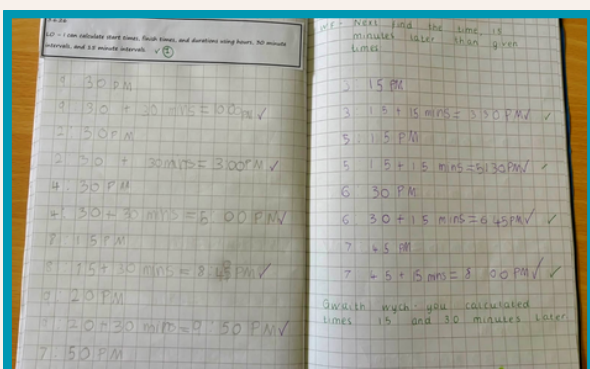 LO - I can calculate start times, finish times, and durations using hours, 30 minute
intervals, and 15 minute intervals.
9:30 PM
9:30 + 30 mins = 10:00PM ✓
2:30PM
2:30 + 30mins = 3:00PM ✓
4:30PM
4:30 + 30 mins = 5:00 PM ✓
8:15PM
8:15 + 30 mins = 8:45 PM ✓
9:20PM
9:20 + 30 mins = 9:50 PM ✓
7:50PM
Next find the time 15
minutes later than given
times
3:15 PM
3:15 + 15 mins = 3:30PM ✓
5:15 PM
5:15 + 15 mins = 5:30PM ✓
6:30 PM
6:30 + 15 mins = 6:45PM ✓
7:45 PM
7:45 + 15 mins = 8:00 PM ✓
Gwaith wych - you calculated
times 15 and 30 minutes later.